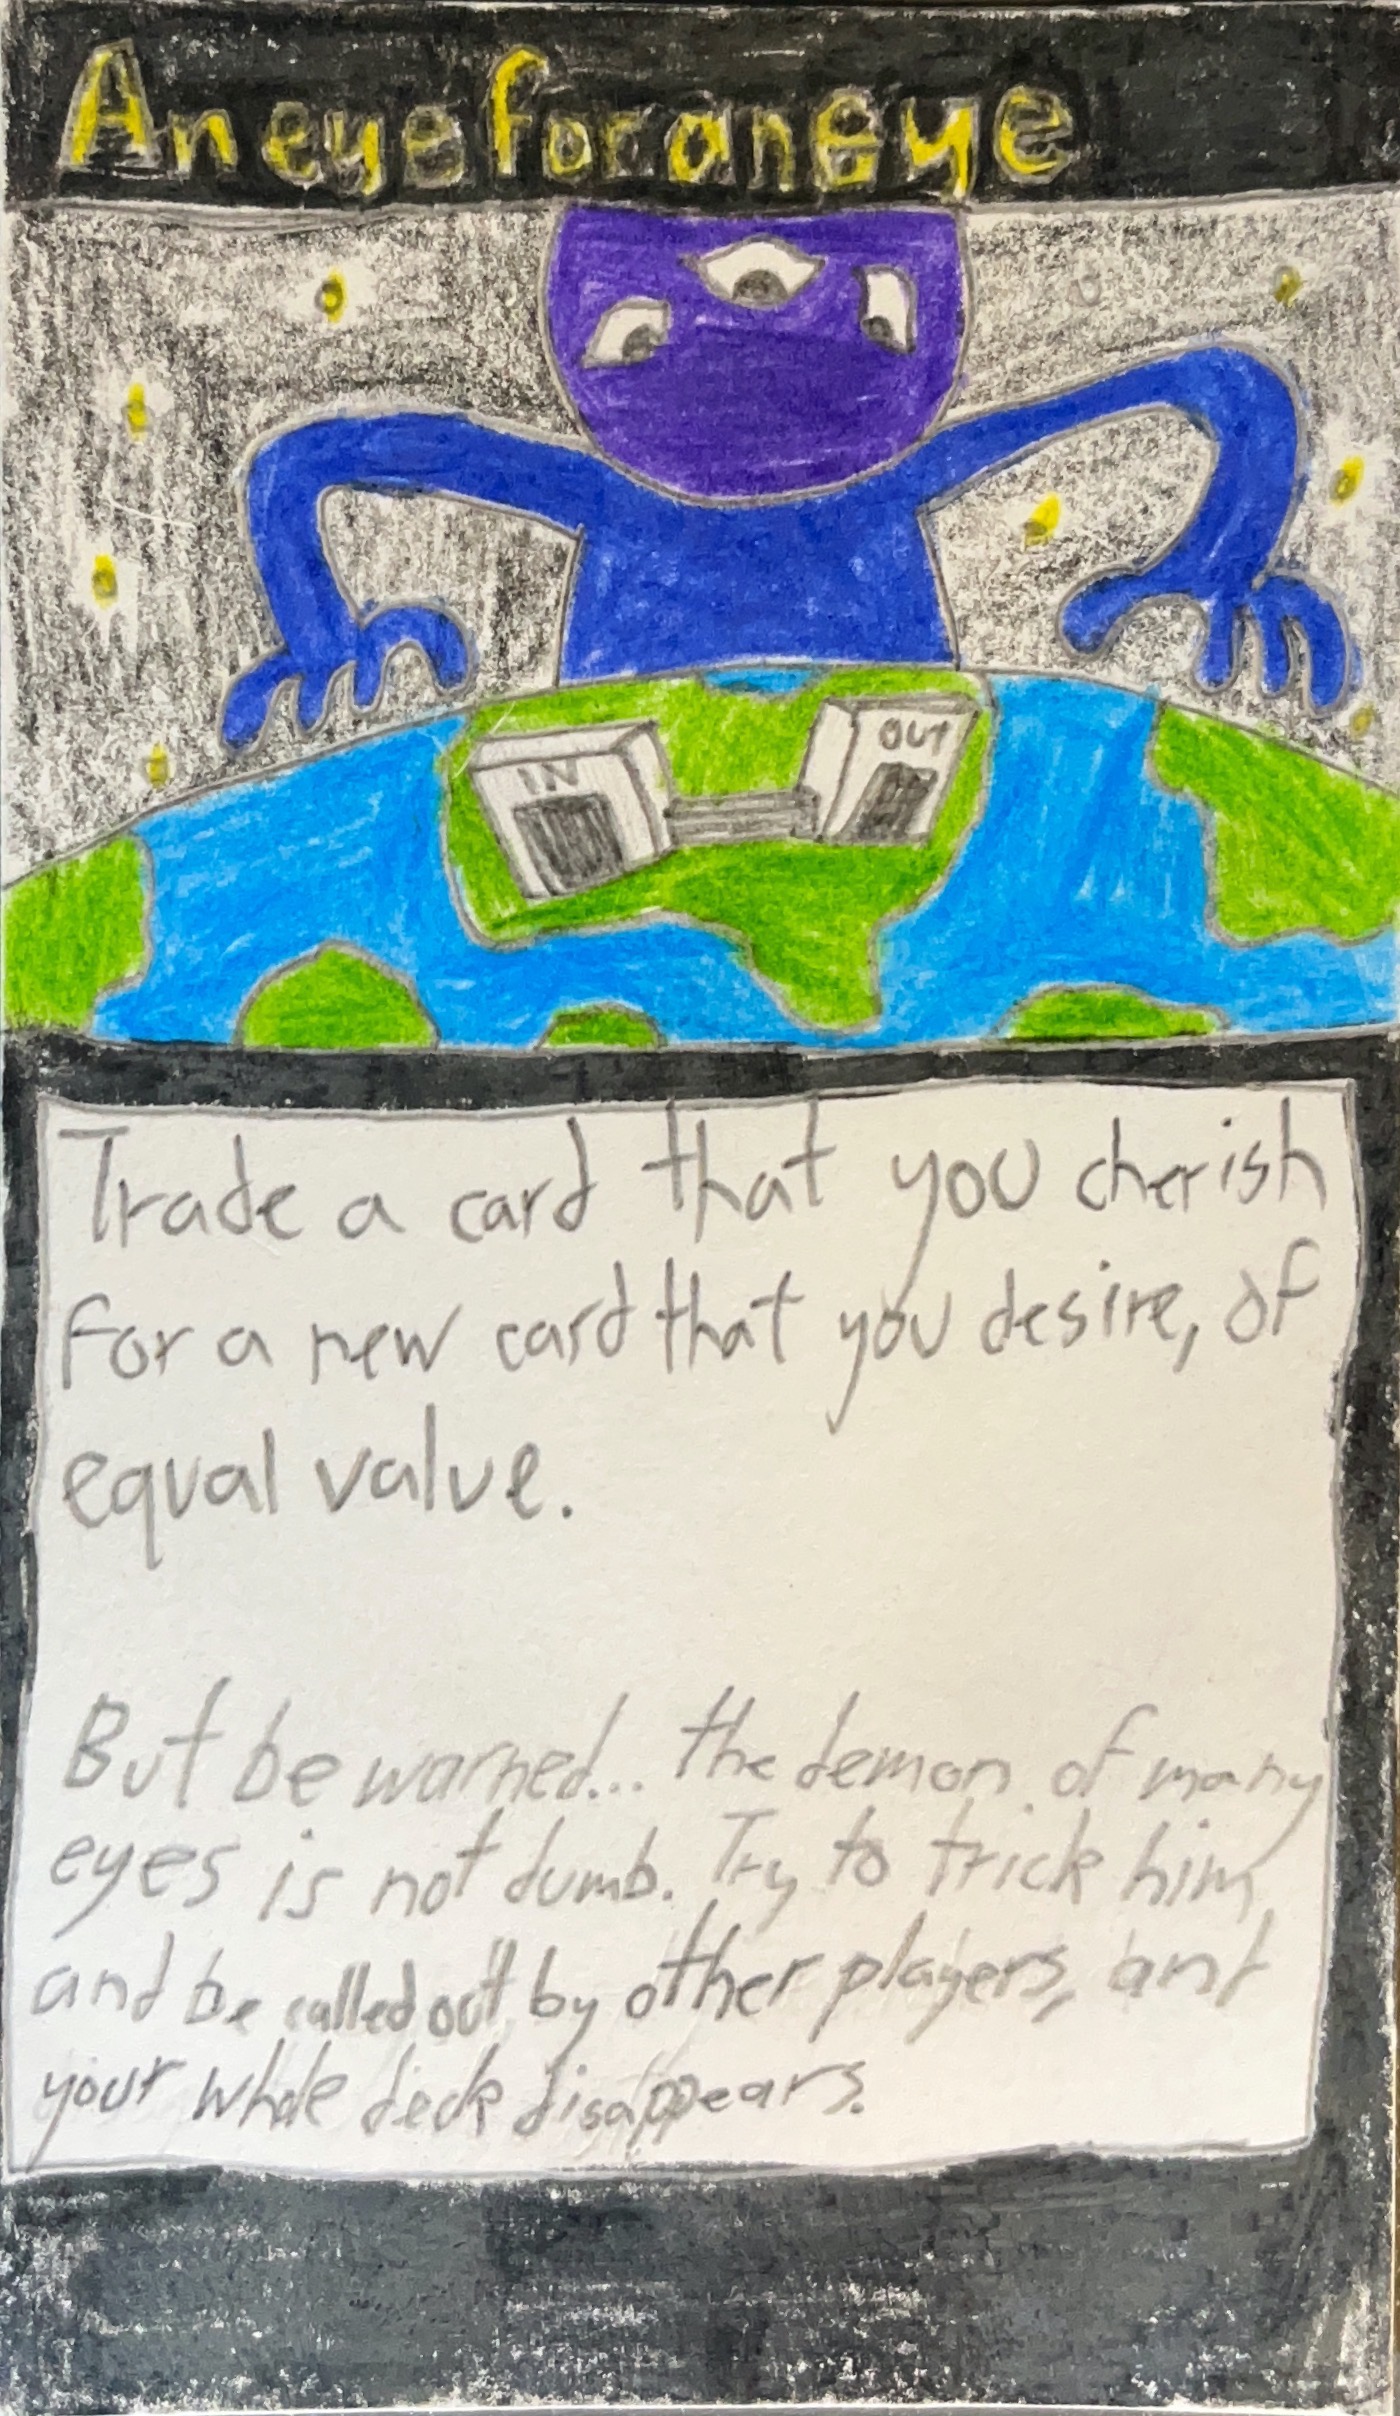 An eye for an eye
IN
OUT
Trade a card that you cherish
for a new card that you desire, of
equal value.
But be warned... the demon of many
eyes is not dumb. Try to trick him
and be called out by other players, and
your whole deck disappears.